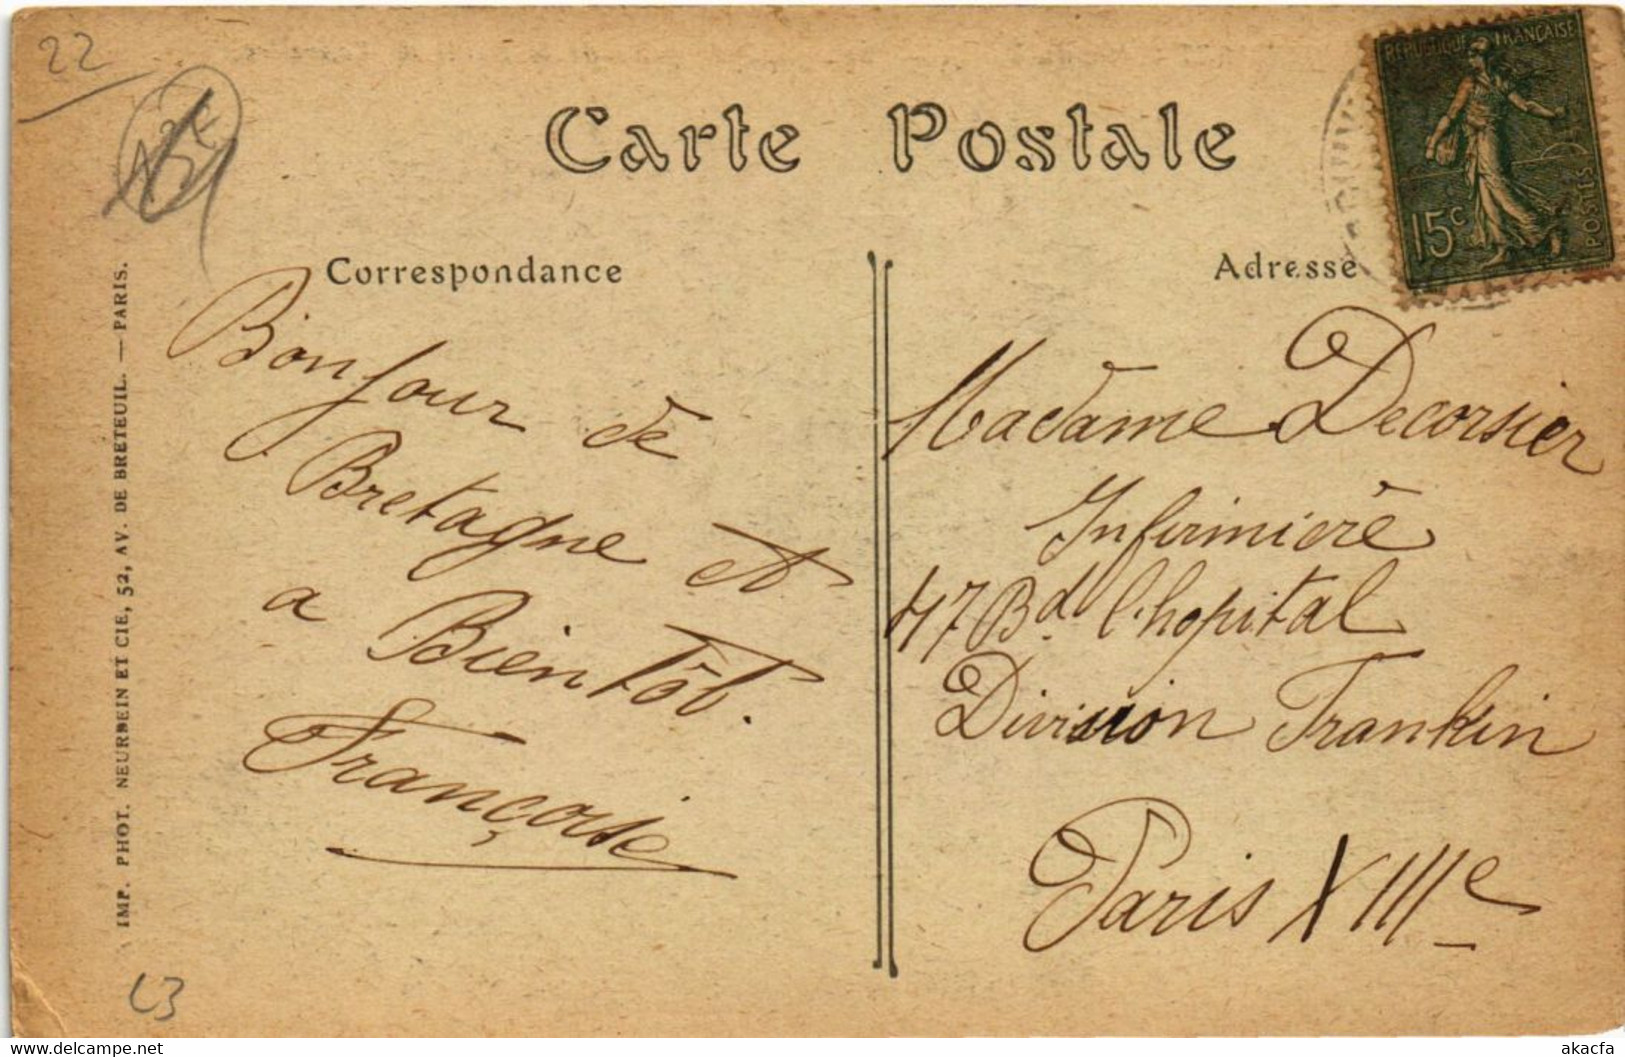 22
Carte Postale
REPUBLIQUE FRANÇAISE
15c
POSTES
Correspondance
Adresse
Bonjour de
Bretagne et
a Bientôt.
Françoise
Madame Decorsier
Infirmière
47 Bd l'hopital
Division Frankin
Paris XIIIe
IMP. PHOT. NEURDEIN ET CIE, 52, AV. DE BRETEUIL. — PARIS.
L3
akacfa